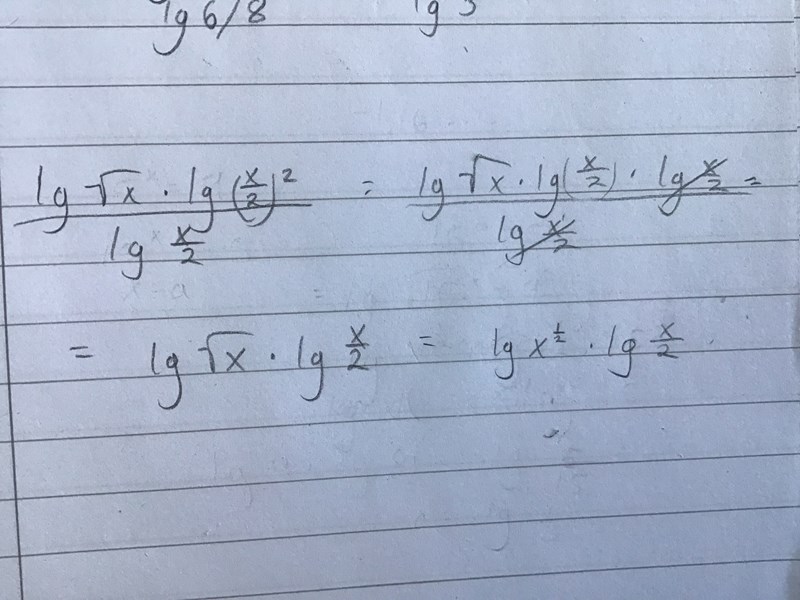 lg 6/8 lg 3
lg √x · lg (x/2)² = lg √x · lg(x/2) · lg x/2 =
lg x/2 lg x/2
= lg √x · lg x/2 = lg x^½ · lg x/2